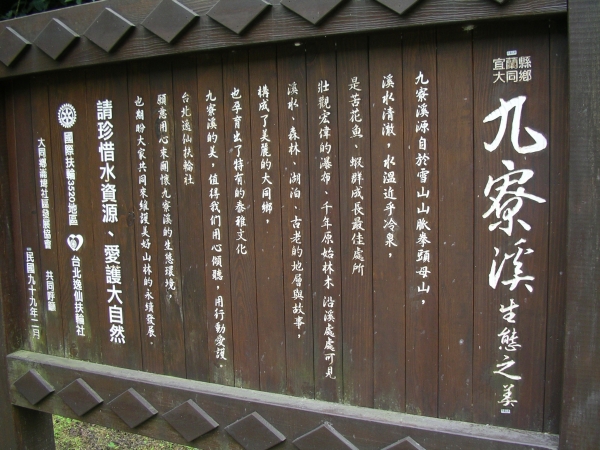 宜蘭縣
大同鄉
九寮溪生態之美
九寮溪源自於雪山山脈拳頭母山，
溪水清澈，水溫近乎冷泉，
是苦花魚、蝦群成長最佳處所
壯觀宏偉的瀑布，千年原始林木沿溪處處可見
溪水、森林、湖泊、古老的地層與故事，
構成了美麗的大同鄉，
也孕育出了特有的泰雅文化
九寮溪的美，值得我們用心傾聽，用行動愛護。
台北逸仙扶輪社
願意用心來關懷九寮溪的生態環境，
也期盼大家共同來維護美好山林的永續發展。
請珍惜水資源、愛護大自然
國際扶輪3480地區 台北逸仙扶輪社
大同鄉崙埤社區發展協會 共同呼籲
民國九十九年二月